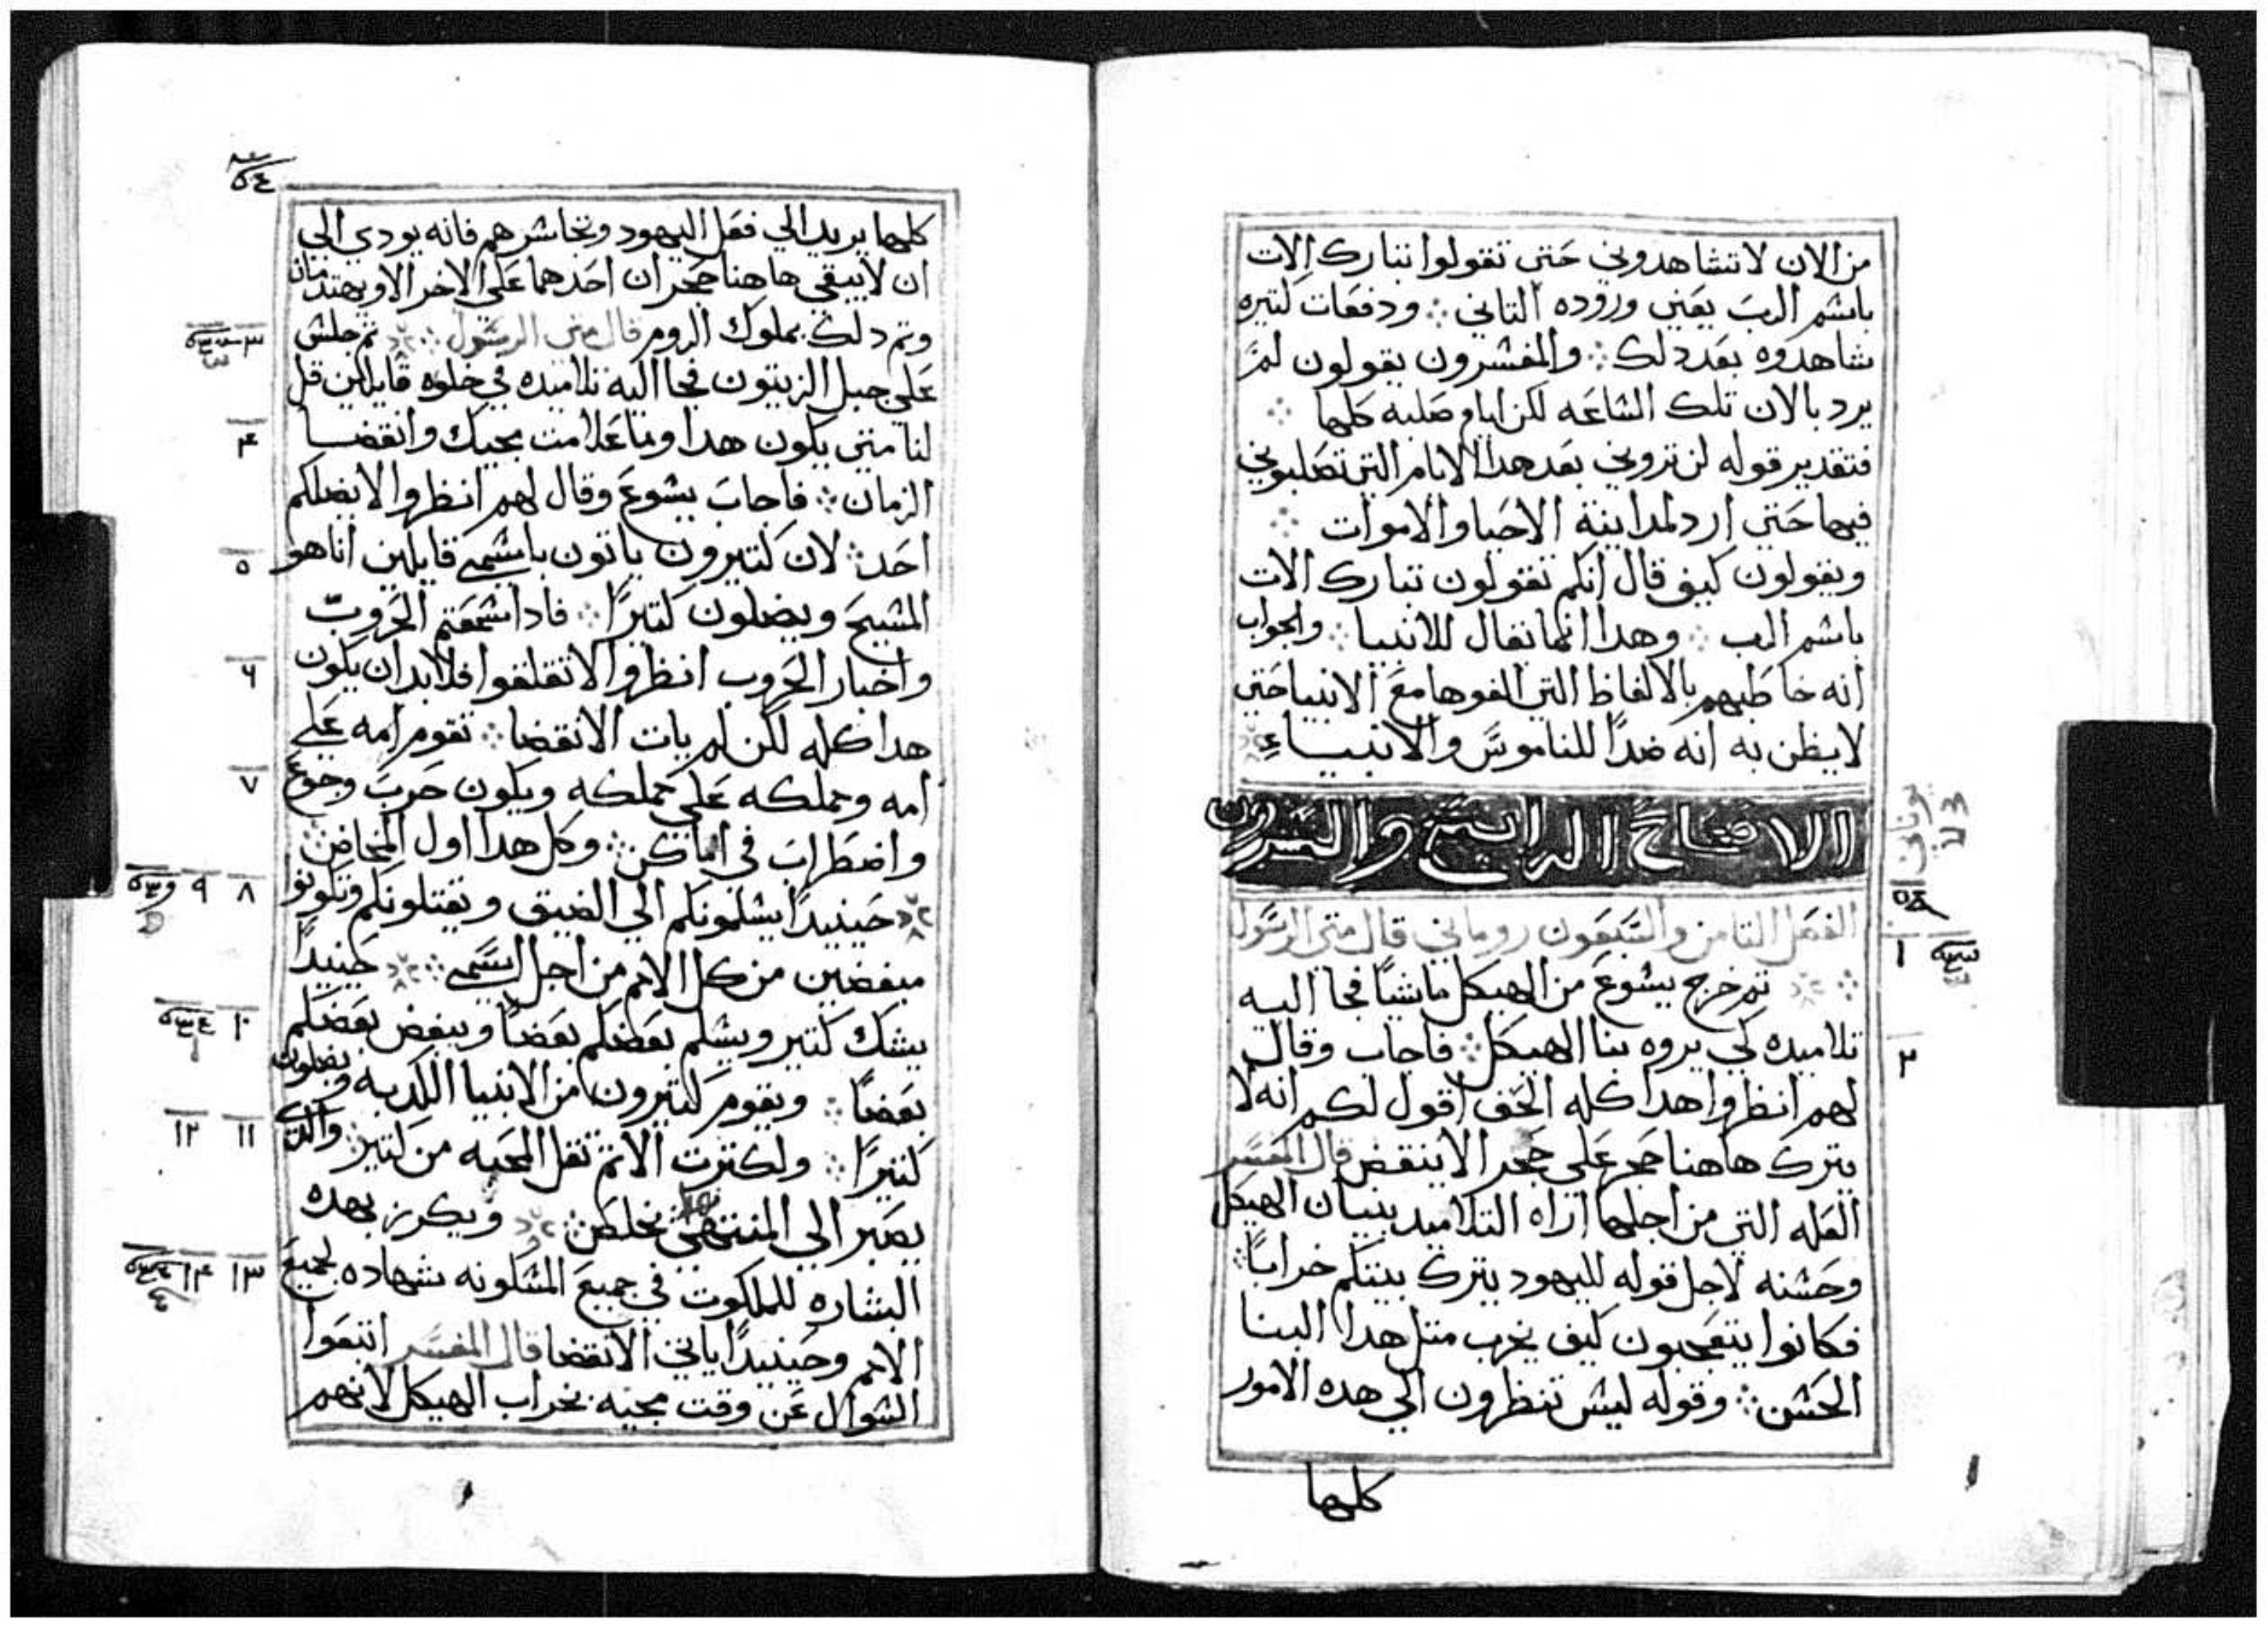 من الان لا تشاهدوني حتي تقولوا تبارك الات
باسم الرب يعني وروده التاني ودفعات كتيره
شاهدوه بعد دلك والمفسرون يقولون لم
يرد بالان تلك الساعه لكن ايام صلبه كلها
فتقدير قوله لن تروني بعد هدا الايام التي تصلبوني
فيها حتي ارد لمداينة الاحيا والاموات
ويقولون كيف قال انكم تقولون تبارك الات
باسم الرب وهدا انما تقال للانبيا والجواب
انه خاطبهم بالالفاظ التي الفوها مع الانبيا حتي
لا يظن به انه ضدا للناموس والانبياء
الافتتاح الرابع والعشرون
يوناني
٥٨
الفصل التامن والسبعون روماني قال متي الرسول
١
تم خرج يشوع من الهيكل ماشيا فجا اليه
تلاميده لكي يروه بنا الهيكل فاجاب وقال
٢
لهم انظروا هدا كله الحق اقول لكم انه لا
يترك هاهنا حجر علي حجر الا ينتقض قال المفسر
العله التي من اجلها اراه التلاميد بنيان الهيكل
وحسنه لاجل قوله لليهود يترك بيتكم خرابا
فكانوا يتعجبون كيف يخرب متل هدا البنا
الحسن وقوله ليس تنظرون الي هده الامور
كلها
كلها يريد الي فعل اليهود وتخاسرهم فانه يودي الي
ان لا يبقي هاهنا حجران احدهما علي الاخر الا ويهتدمان
وتم دلك بملوك الروم قال متي الرسول تم جلس
٣
علي جبل الزيتون فجا اليه تلاميده في خلوه قايلين قل
لنا متي يكون هدا وما علامت مجيك وانقضا
٤
الزمان فاجاب يشوع وقال لهم انظروا لا يضلكم
احد لان كتيرون ياتون باسمي قايلين انا هو
٥
المسيح ويضلون كتيرا فادا سمعتم الحروب
واخبار الحروب انظروا لا تقلقوا فلابد ان يكون
٦
هدا كله لكن لم يات الانقضا تقوم امه علي
امه ومملكه علي مملكه ويكون حرب وجوع
٧
واضطراب في اماكن وكل هدا اول المخاض
حينيدا يسلمونكم الي الضيق ويقتلونكم وتكونو
٨ ٩
مبغضين من كل الامم من اجل اسمي حينيدا
يشك كتير ويسلم بعضكم بعضا ويبغض بعضكم
١٠
بعضا ويقوم كتيرون من الانبيا الكدبه ويضلون
كتيرا ولكترت الاتم تقل المحبه من كتير والدي
١١ ١٢
يصبر الي المنتهي يخلص ويكرز بهده
البشاره للملكوت في جميع المسكونه شهاده لجميع
١٣ ١٤
الامم وحينيدا ياتي الانقضا قال المفسر اتبعوا
السوال عن وقت مجيه بخراب الهيكل لانهم